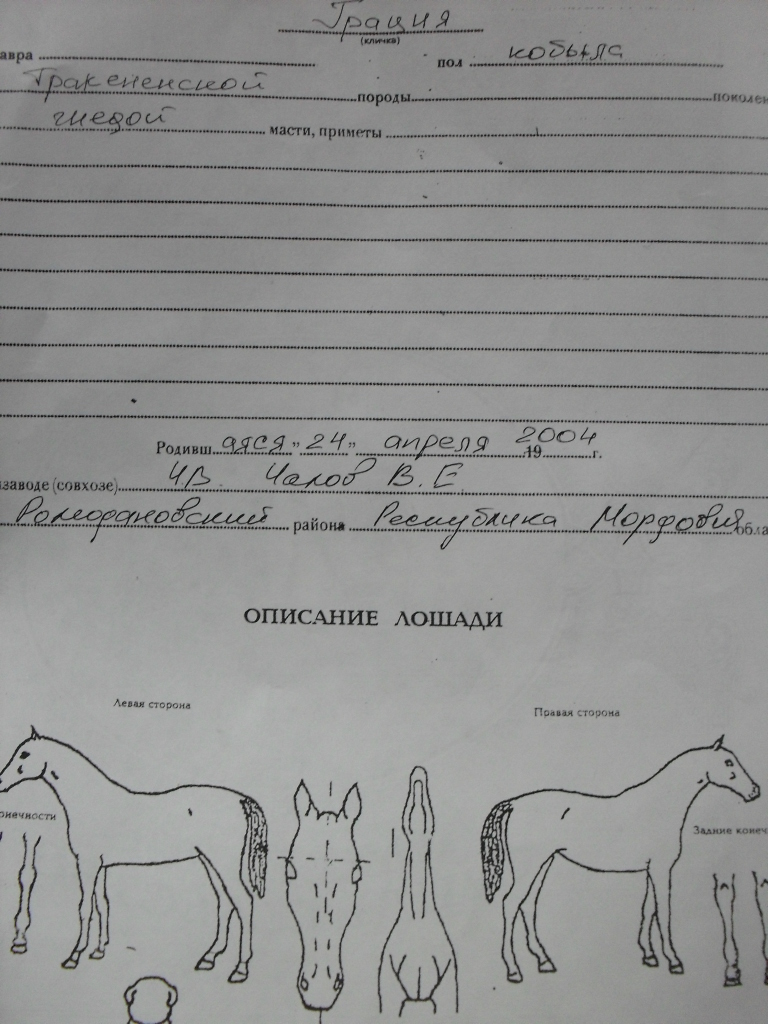 Грация
(кличка)
авра пол кобыла
Тракененской породы поколен
гнедой масти, приметы
Родивш аяся "24" апреля 2004 19 г.
заводе (совхозе) ЧВ Чалов В. Е
Ромодановский района Республика Мордовия обла
ОПИСАНИЕ ЛОШАДИ
Левая сторона
Правая сторона
онечности
Задние конеч